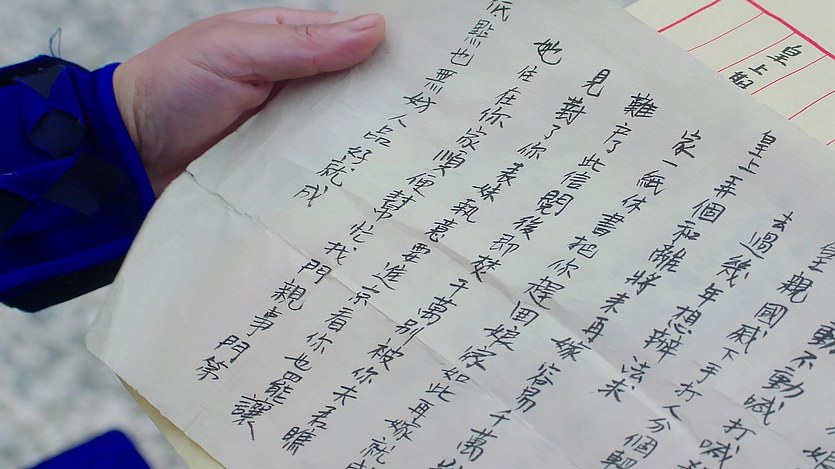 皇上
娘
動不動喊打喊
皇親國戚下手打人分個輕
去過幾年想辦法求
皇上弄個和離將來再嫁容易千萬
家一紙休書把你趕回娘家如此再嫁就成
難產了此信閱後即焚千萬別被你夫君瞧
見對了你表妹執意要進京看你也罷讓
她住在你家順便幫忙找門親事門第
低點也無妨人品好就成